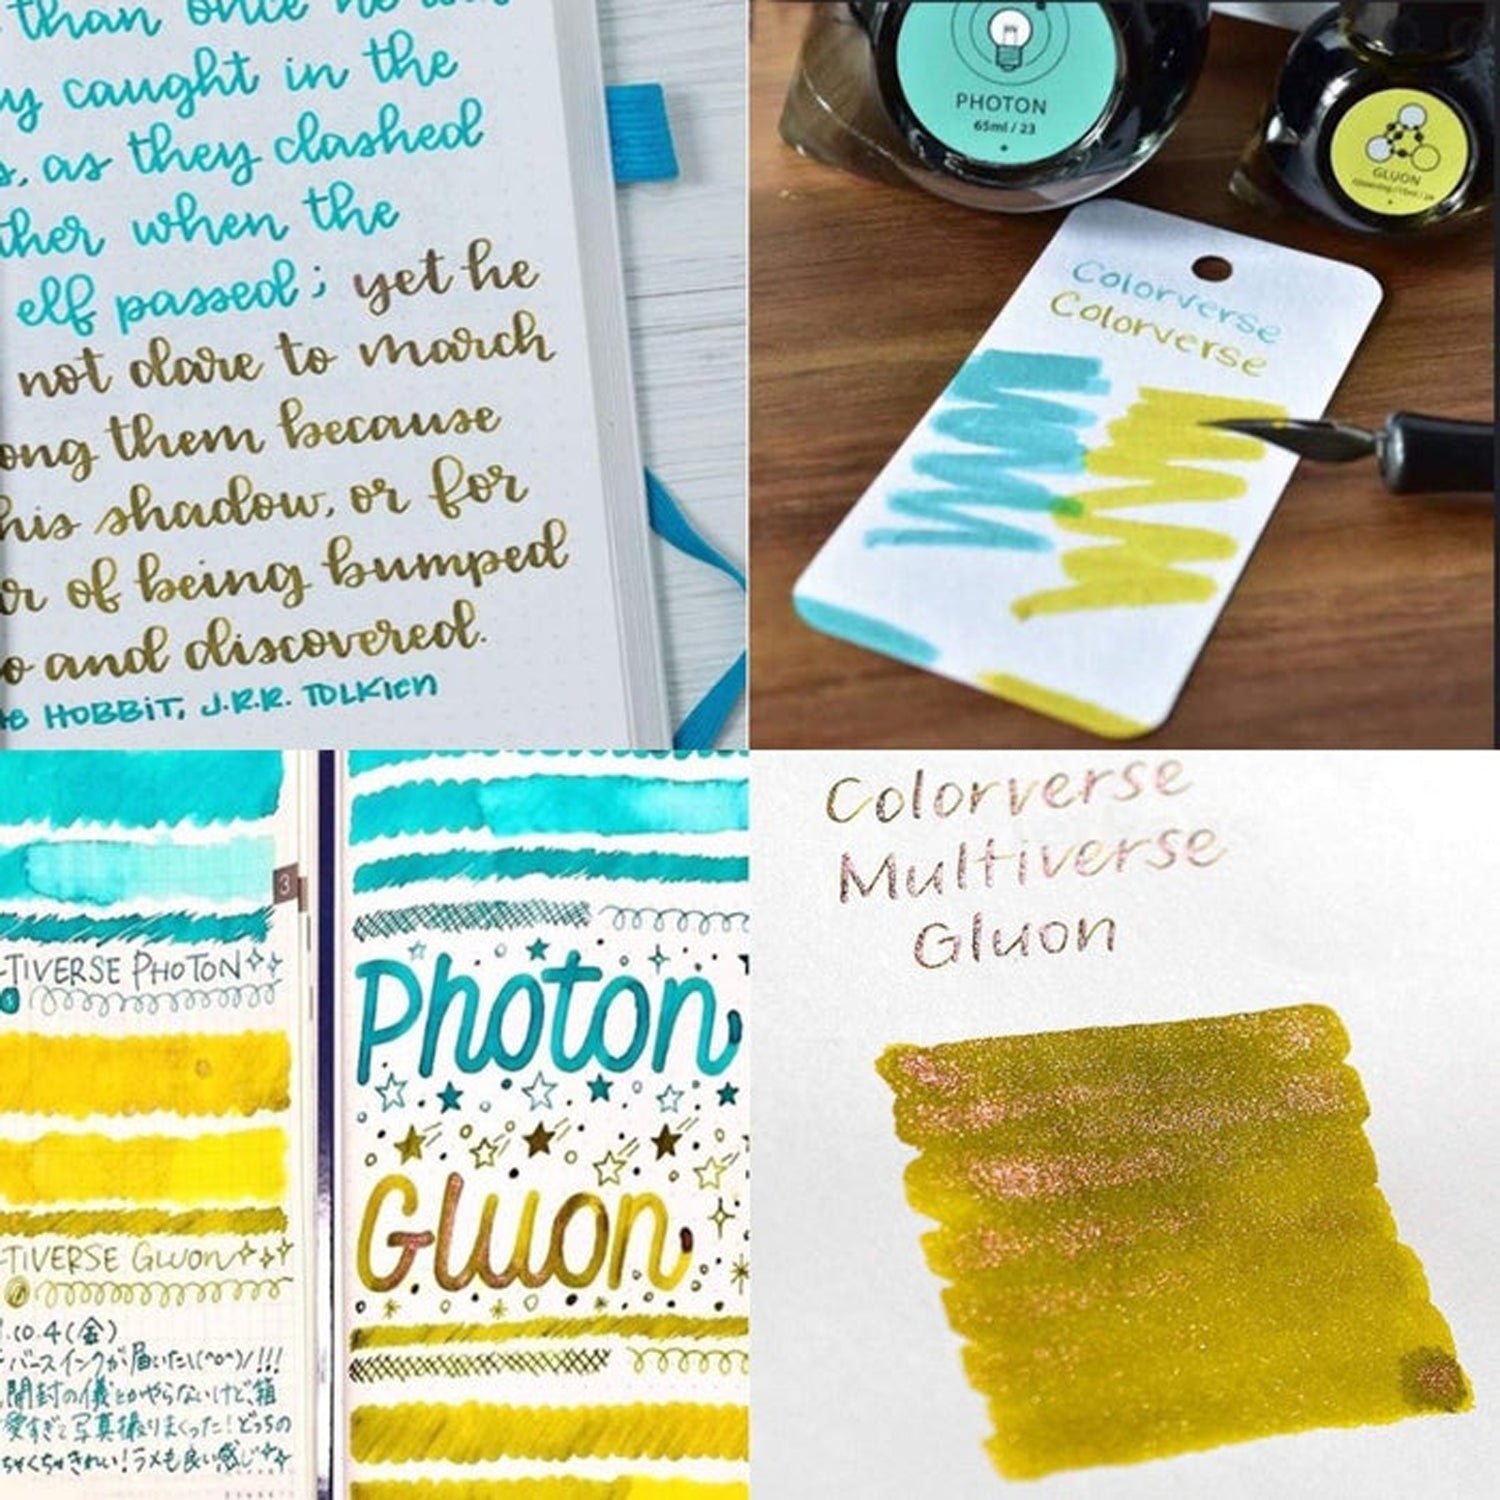 than once he was
caught in the
as they clashed
when the
elf passed; yet he
not dare to march
them because
his shadow, or for
of being bumped
and discovered.
HOBBIT, J.R.R. TOLKIEN
PHOTON
65ml / 23
GLUON
Colorverse
Colorverse
3
-TIVERSE PHOTON
-TIVERSE Gluon
.10.4(金)
バースインクが届いた\(^o^)/!!!
開封の儀とかやらないけど、箱
愛すぎて写真撮りまくった!どっちの
ちゃくちゃきれい!ラメも良い感じ
Photon
Gluon
Colorverse
Multiverse
Gluon